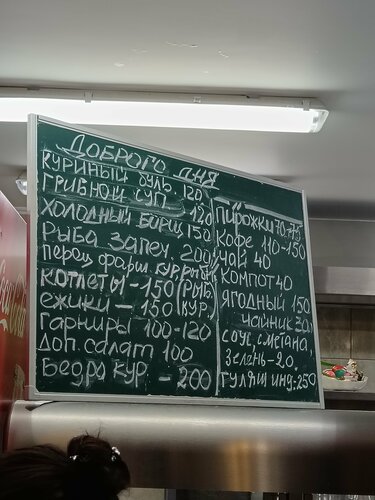 ДОБРОГО ДНЯ
КУРИНЫЙ БУЛЬ. 120
ГРИБНОЙ СУП 120
ХОЛОДНЫЙ БОРЩ 150
РЫБА ЗАПЕЧ. 200
перец фарш.
КОТЛЕТЫ - 150 (РЫБ,
ЕЖИКИ - 150 (КУР,
ГАРНИРЫ 100-120
ДОП. САЛАТ 100
БЕДРО КУР. - 200
ПИРОЖКИ 70-75
КОФЕ 110-150
ЧАЙ 40
КОМПОТ 40
ЯГОДНЫЙ 150
ЧАЙНИК 300
СОУС, СМЕТАНА,
ЗЕЛЕНЬ-20.
ГУЛЯШ ИНД. 250
Coca-Cola